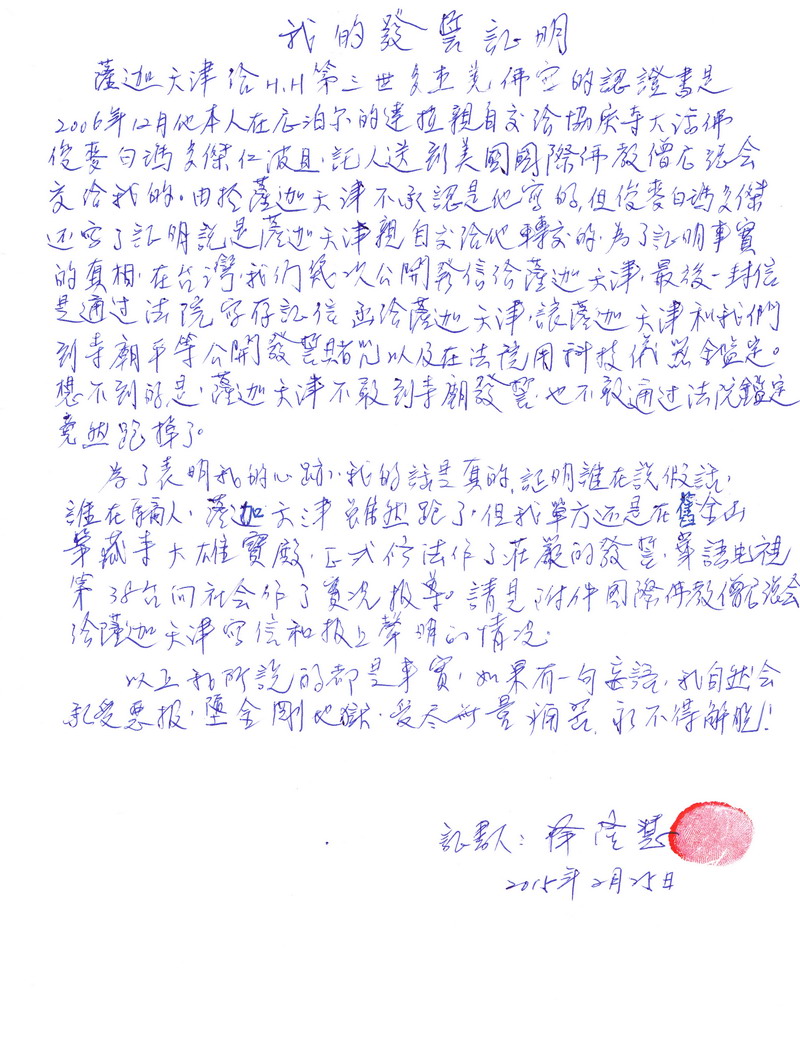 我的發誓証明
薩迦天津给H.H第三世多杰羌佛寫的認證書是
2006年12月他本人在尼泊尔的達拉親自交给協庆寺大活佛
俊麥白瑪多傑仁波且，託人送到美國國際佛教僧尼總会
交给我的。由於薩迦天津不承認是他寫的，但俊麥白瑪多傑
还寫了証明説是薩迦天津親自交给他轉交的，為了証明事實
的真相，在台灣，我们幾次公開發信给薩迦天津，最後一封信
是通过法院寫存証信函给薩迦天津，讓薩迦天津和我們
到寺廟平等公開發誓賭咒以及在法院用科技儀器鑑定。
想不到的是，薩迦天津不敢到寺廟發誓，也不敢通过法院鑑定
竟然跑掉了。
為了表明我的心跡，我的話是真的，証明誰在説假話，
誰在騙人，薩迦天津雖然跑了，但我單方还是在舊金山
華藏寺大雄寶殿，正式修法作了莊嚴的發誓，華語电視
第38台向社会作了實况报导。請見附件國際佛教僧尼總会
给薩迦天津寫信和报上聲明的情况。
以上我所說的都是事實，如果有一句妄語，我自然会
承受惡报，墮金剛地獄，受尽無量痛苦，永不得解脱！
証書人：釋隆慧
2015年2月25日